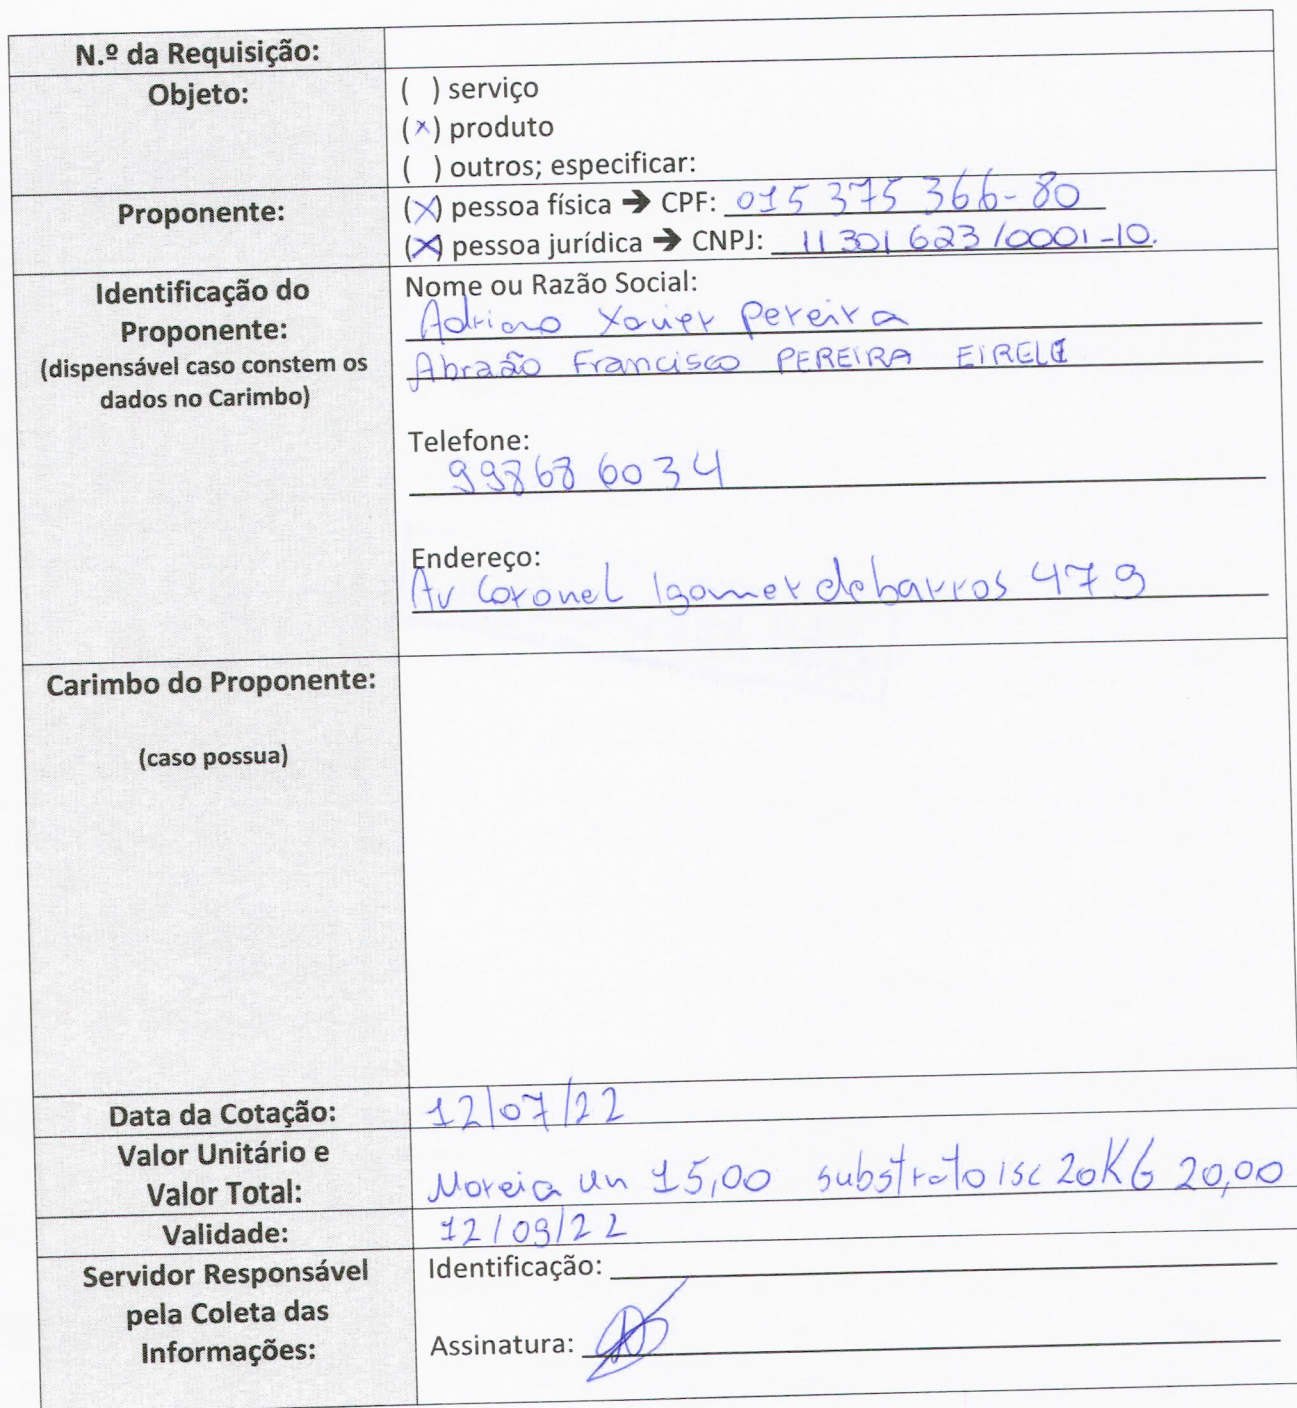 N.º da Requisição:
Objeto:
( ) serviço
(x) produto
( ) outros; especificar:
Proponente:
(X) pessoa física ➔ CPF: 015 375 366-80
(X) pessoa jurídica ➔ CNPJ: 11 301 623/0001-10.
Identificação do
Proponente:
(dispensável caso constem os
dados no Carimbo)
Nome ou Razão Social:
Adriano Xavier Pereira
Abraão Francisco PEREIRA EIRELI
Telefone:
998686034
Endereço:
Av Coronel de barros 479
Carimbo do Proponente:
(caso possua)
Data da Cotação:
12/07/22
Valor Unitário e
Valor Total:
Moreia un 15,00 substrato 20KG 20,00
Validade:
12/09/22
Servidor Responsável
pela Coleta das
Informações:
Identificação:
Assinatura: